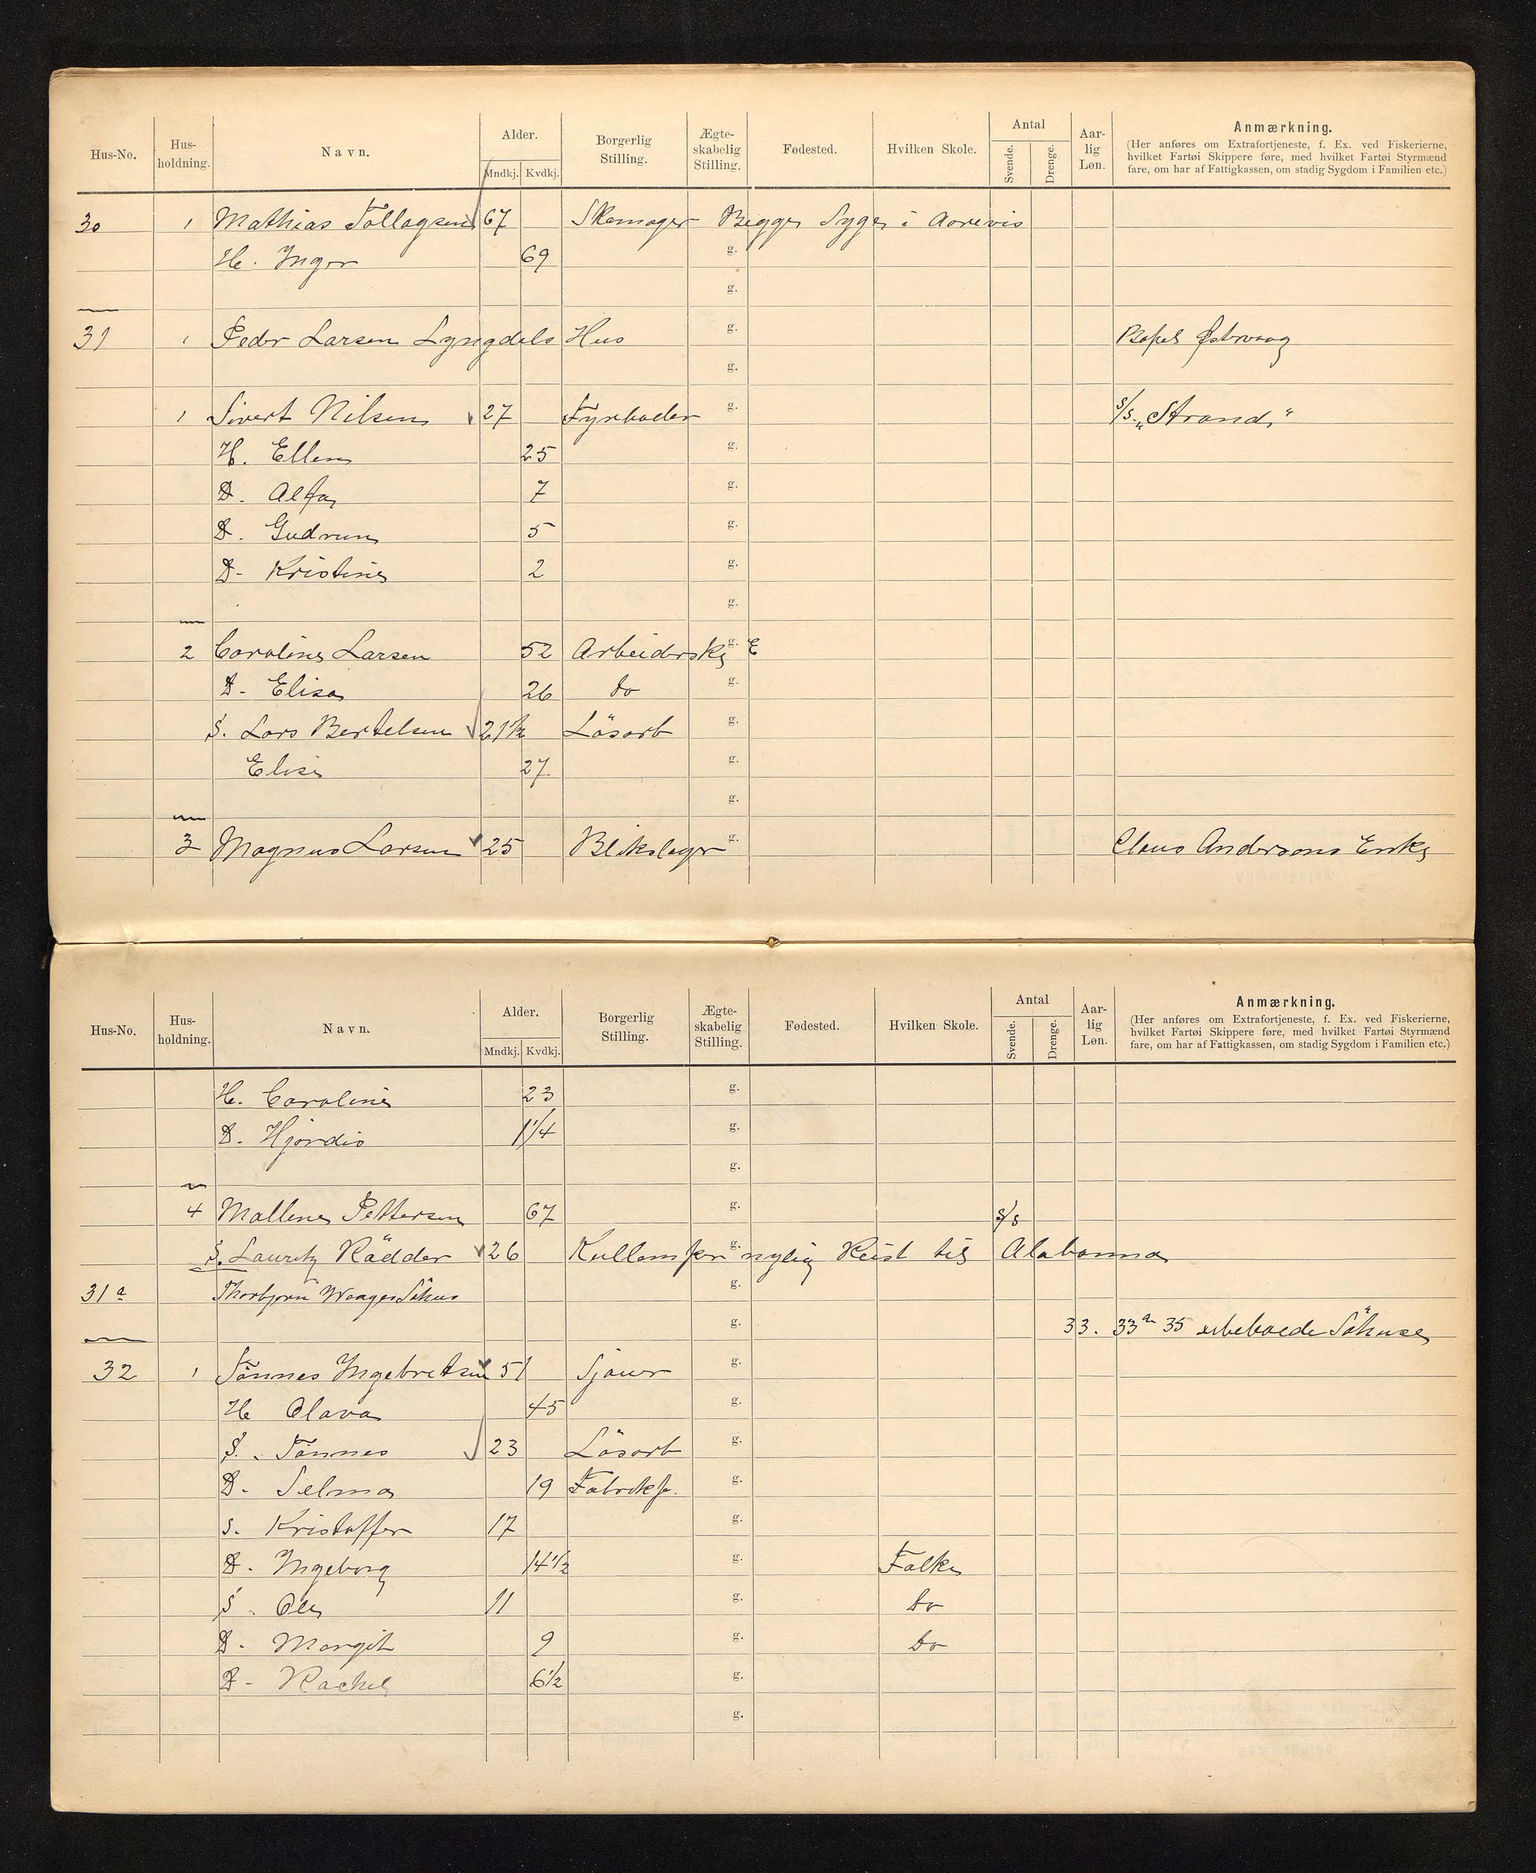 Hus-No. Hus-holdning. Navn. Alder. Mndkj. Kvdkj. Borgerlig Stilling. Ægte-skabelig Stilling. Fødested. Hvilken Skole. Antal Svende. Drenge. Aar-lig Løn. Anmærkning.
(Her anføres om Extrafortjeneste, f. Ex. ved Fiskerierne,
hvilket Fartøi Skippere føre, med hvilket Fartøi Styrmænd
fare, om har af Fattigkassen, om stadig Sygdom i Familien etc.)
30 1 Mathias Tollagsen 67 Skomager Begge Syge i Aarevis
H. Inger 69 g.
g.
31 1 Peder Larsen Lyngdals Hus g. Østervaag
g.
1 Sivert Nilsen 27 Fyrbøder g. S/S. „Strand“
H. Ellen 25 g.
D. Alfa 7 g.
D. Gudrun 5 g.
D. Kristine 2 g.
g.
2 Caroline Larsen 52 Arbeiderske g. E
D. Elisa 26 do g.
S. Lars Bertelsen 21½ Løsarb g.
Elise 27 g.
g.
3 Magnus Larsen 25 Blikslager g. Claus Andersens Enke
Hus-No. Hus-holdning. Navn. Alder. Mndkj. Kvdkj. Borgerlig Stilling. Ægte-skabelig Stilling. Fødested. Hvilken Skole. Antal Svende. Drenge. Aar-lig Løn. Anmærkning.
(Her anføres om Extrafortjeneste, f. Ex. ved Fiskerierne,
hvilket Fartøi Skippere føre, med hvilket Fartøi Styrmænd
fare, om har af Fattigkassen, om stadig Sygdom i Familien etc.)
H. Caroline 23 g.
D. Hjørdis 1 1/4 g.
g.
4 Mallene Pettersen 67 g. S/S
S. Lauritz Rødder 26 Kullemper g. nylig Reist til Alabama
31a Thorbjørn Waages Søhus g.
g. 33. 33a 35 ubeboede Søhuse
32 1 Tønnes Ingebretsen 51 Sjauer g.
H Olava 45 g.
S. Tønnes 23 Løsarb g.
D. Selma 19 Fabrikp. g.
S. Kristoffer 17 g.
D. Ingeborg 14½ g. Folke
S. Ole 11 g. do
D. Margit 9 g. do
D. Rachel 6½ g.
g.